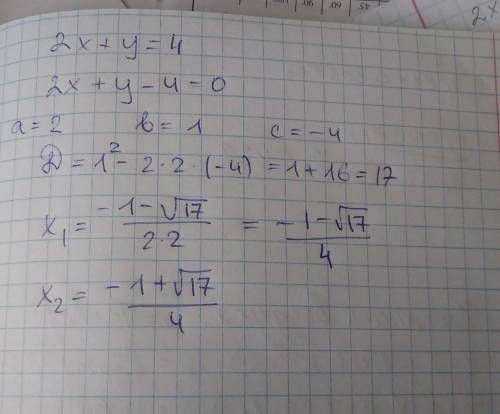 2x + y = 4
2x + y - 4 = 0
a = 2 b = 1 c = -4
D = 1² - 2·2·(-4) = 1 + 16 = 17
x₁ = (-1 - √17)/(2·2) = (-1 - √17)/4
x₂ = (-1 + √17)/4
2x